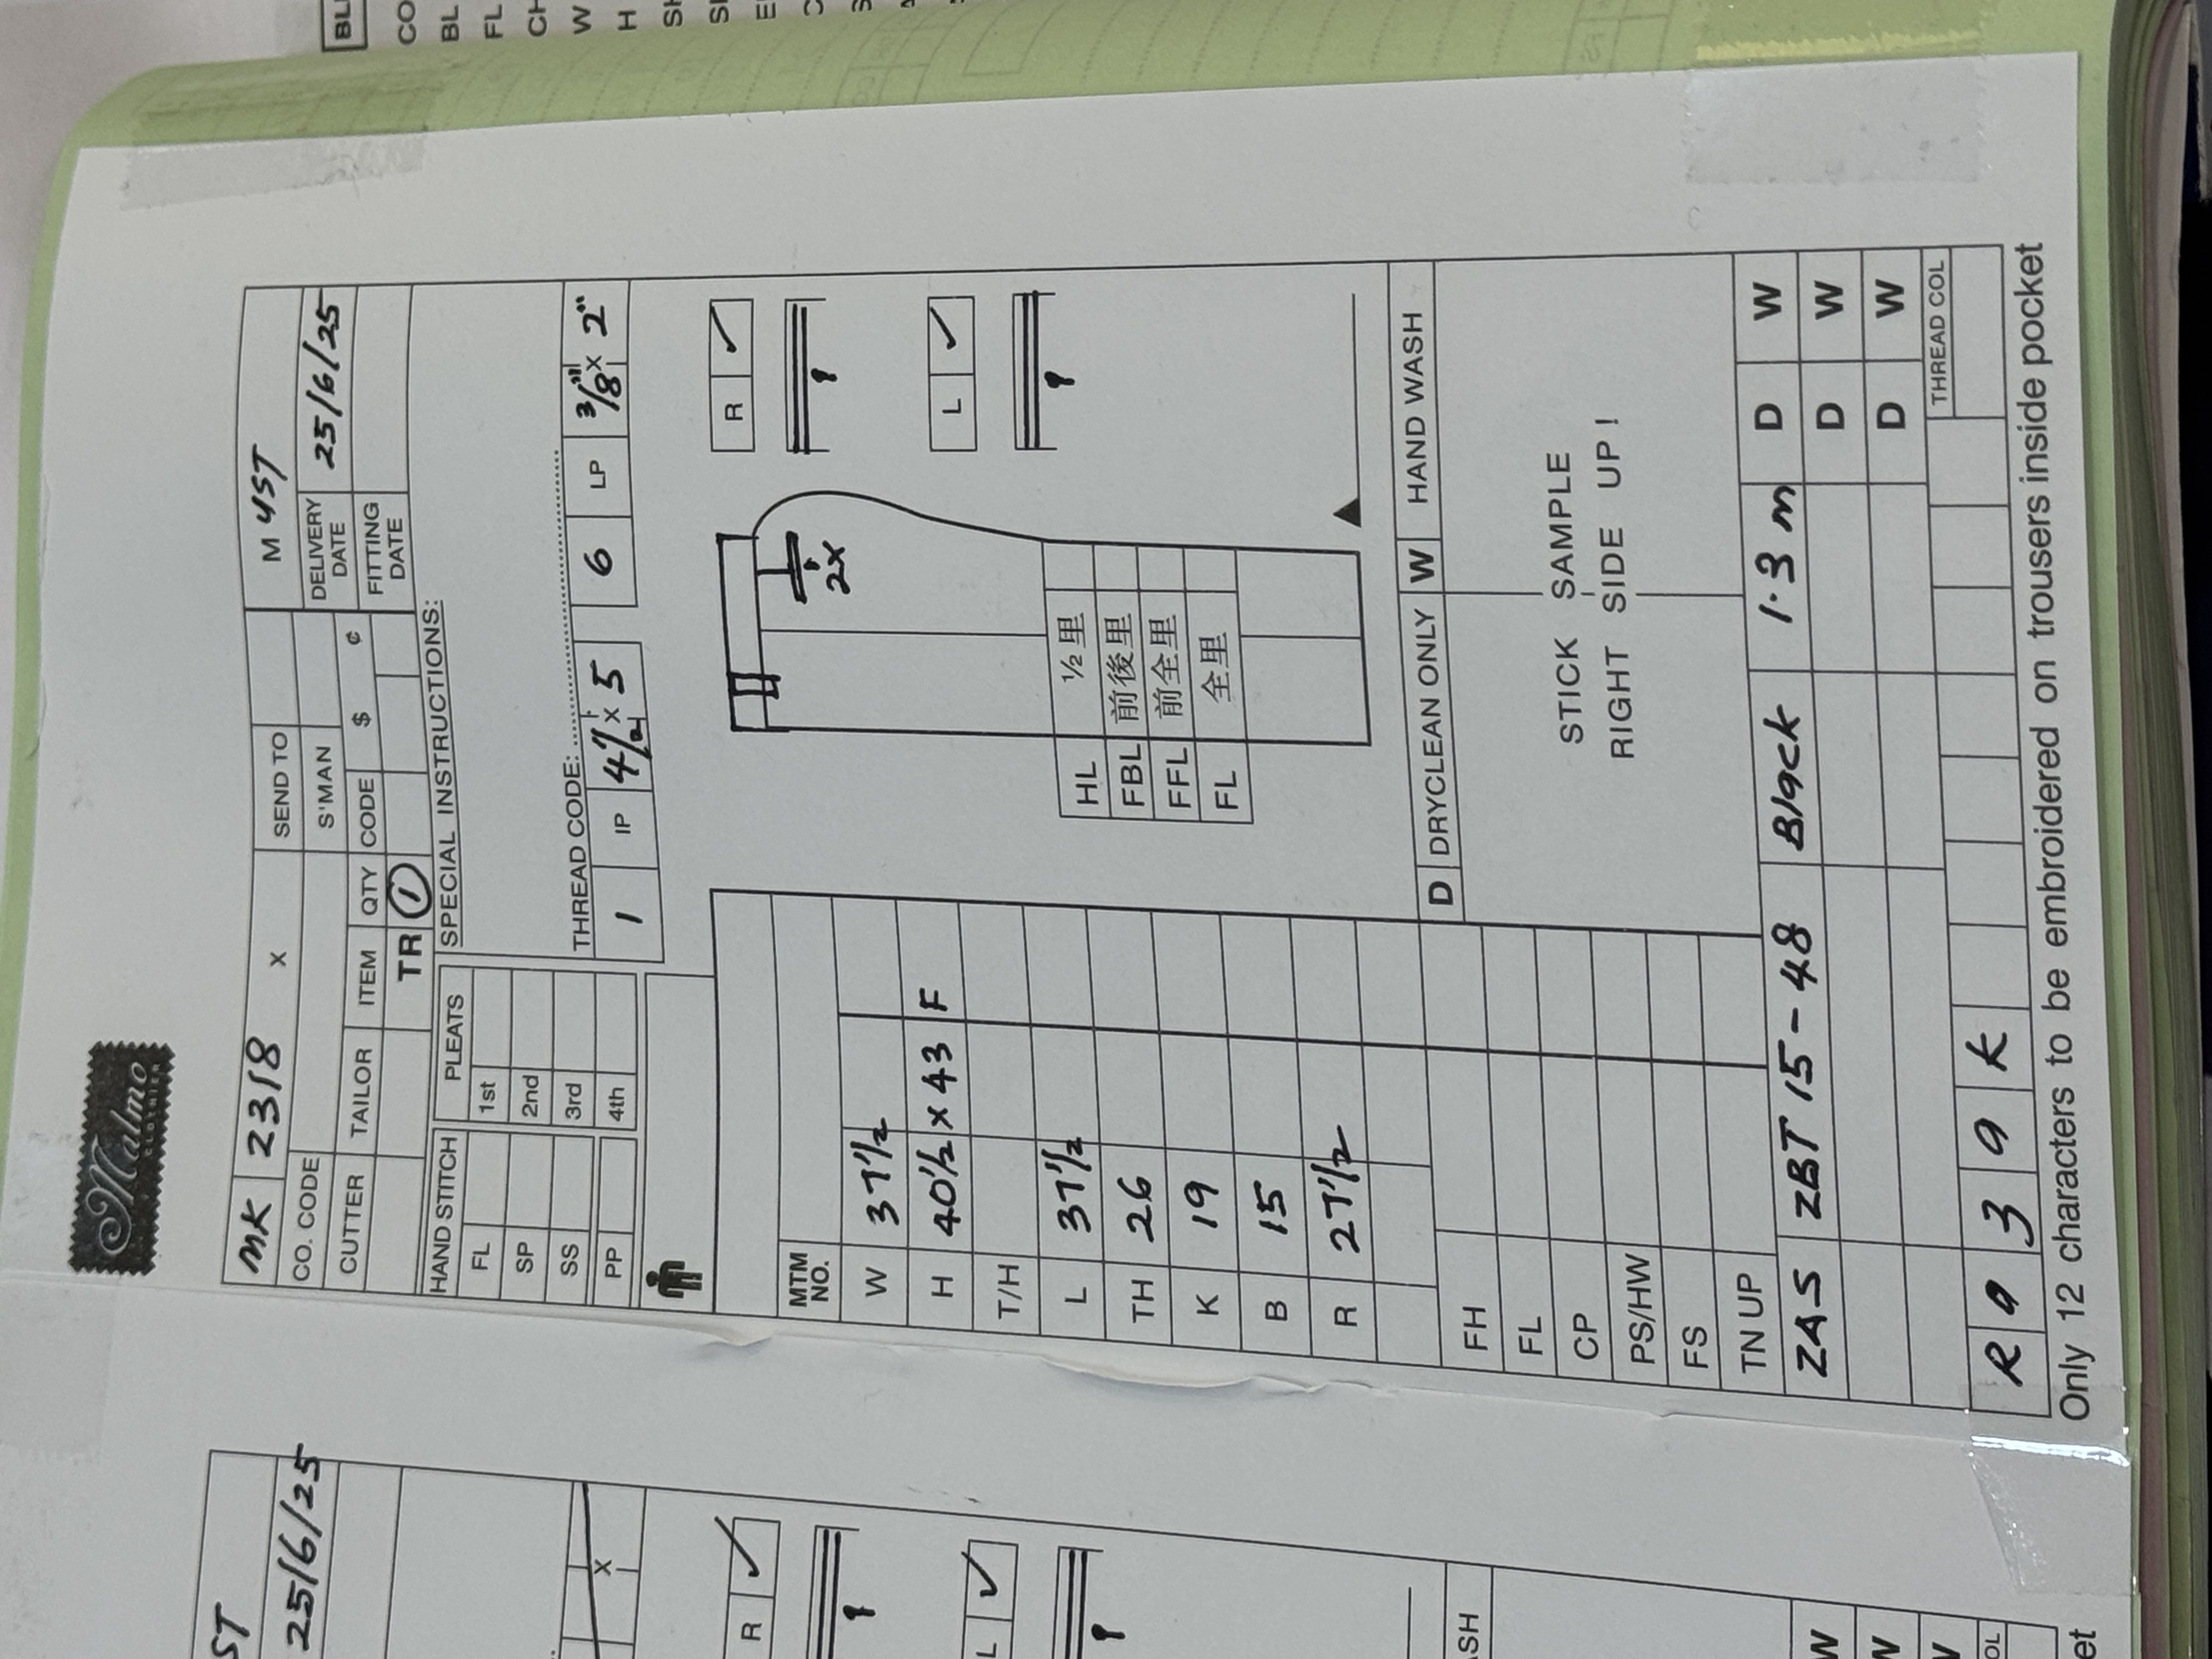 Malmo
CLOTHIER
MK 2318 x SEND TO M YST
CO. CODE S'MAN DELIVERY DATE 25/6/25
CUTTER TAILOR ITEM QTY CODE $ ¢ FITTING DATE
TR 1
HAND STITCH PLEATS SPECIAL INSTRUCTIONS:
FL 1st
SP 2nd
SS 3rd THREAD CODE:
PP 4th 1 IP 4 1/2" x 5 6 LP 3/8" x 2"
MTM NO.
W 37 1/2
H 40 1/2 x 43 F
T/H
L 37 1/2
TH 26
K 19
B 15
R 27 1/2
FH
FL
CP
PS/HW
FS
TN UP
2x
R ✓
L ✓
HL ½里
FBL 前後里
FFL 前全里
FL 全里
D DRYCLEAN ONLY W HAND WASH
STICK SAMPLE
RIGHT SIDE UP !
ZAS ZBT 15-48 Black 1.3 m D W
D W
D W
THREAD COL
R 9 3 9 K
Only 12 characters to be embroidered on trousers inside pocket
ST
25/6/25
x
R ✓
L ✓
ASH
W
W
OL
et
BL
CO
BL
FL
CH
W
H